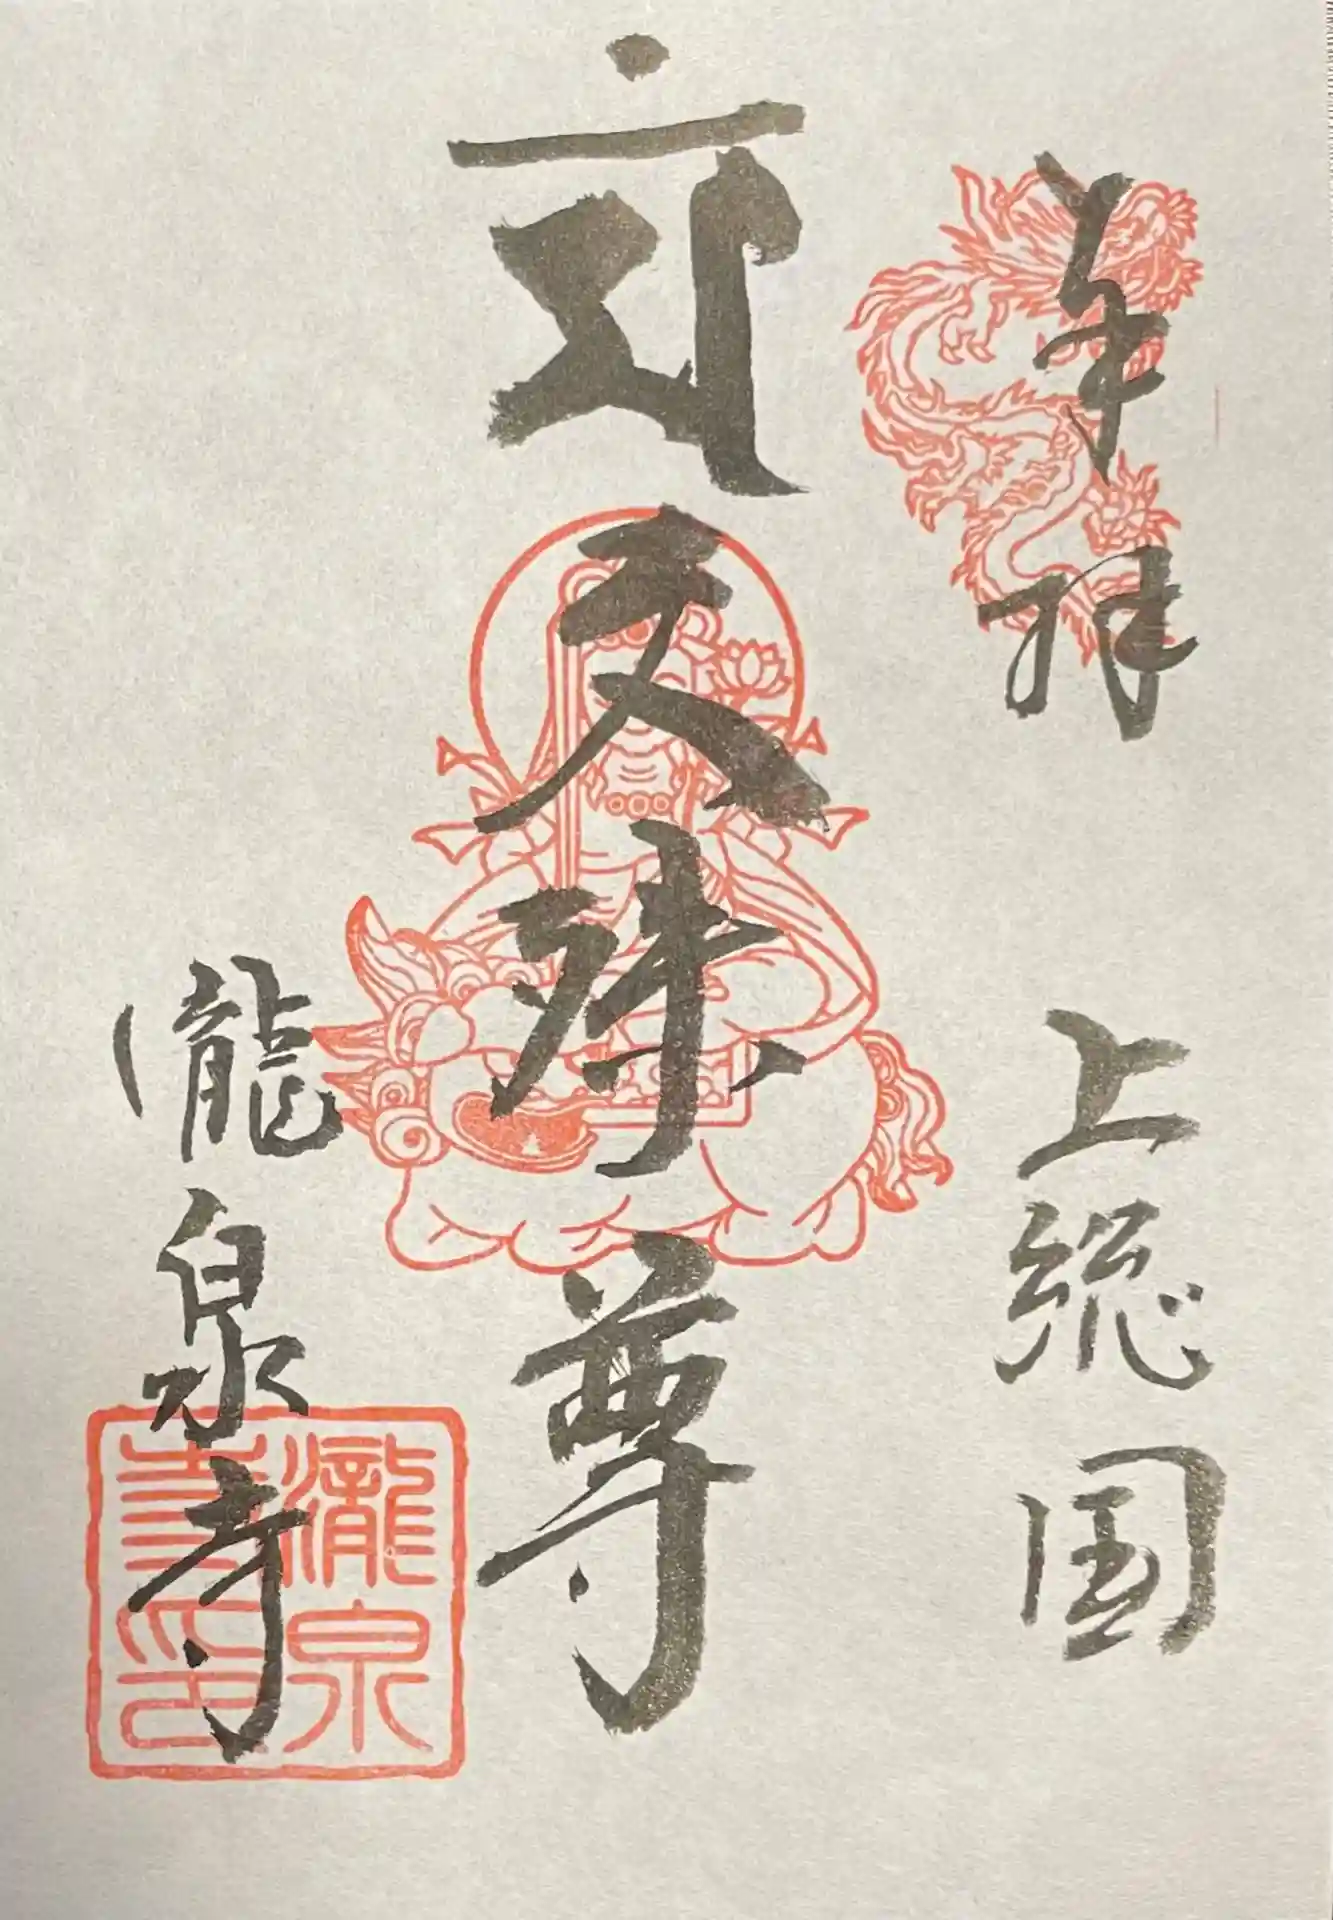 奉拝　上総国
मं 文殊尊
瀧泉寺
瀧泉寺印